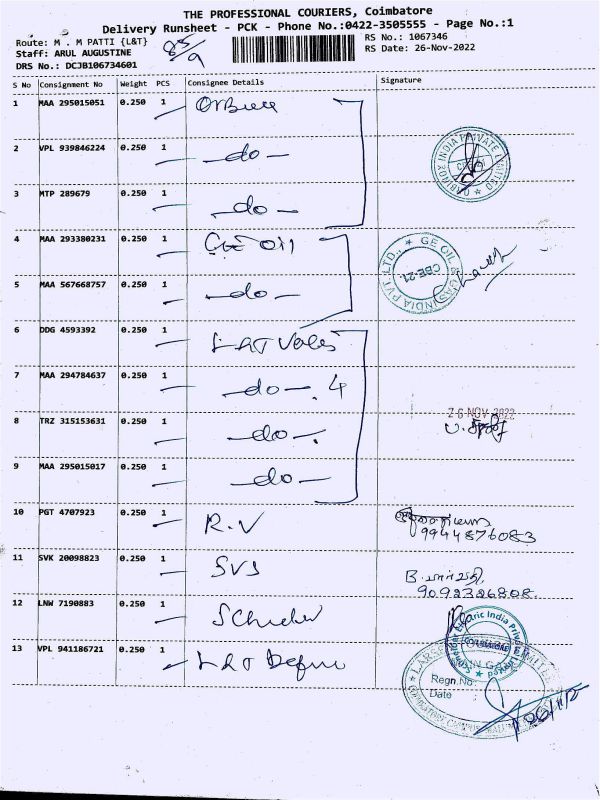 THE PROFESSIONAL COURIERS, Coimbatore
Delivery Runsheet - PCK - Phone No.:0422-3505555 - Page No.:1
Route: M . M PATTI {L&T}
RS No.: 1067346
Staff: ARUL AUGUSTINE
RS Date: 26-Nov-2022
DRS No.: DCJB106734601
S No Consignment No Weight PCS Consignee Details Signature
1 MAA 295015051 0.250 1
2 VPL 939846224 0.250 1 - do -
3 MTP 289679 0.250 1 - do -
4 MAA 293380231 0.250 1 GE Oil
5 MAA 567668757 0.250 1 - do -
6 DDG 4593392 0.250 1 L&T
7 MAA 294784637 0.250 1 - do - . 4
8 TRZ 315153631 0.250 1 - do - .
26 NOV 2022
9 MAA 295015017 0.250 1 - do -
10 PGT 4707923 0.250 1 R.V
9944876083
11 SVK 20098823 0.250 1 SVS
9092326808
12 LNW 7190883 0.250 1
13 VPL 941186721 0.250 1 L&T
GE OIL & GAS INDIA PVT. LTD.,
CBE-21.
Regn.No
Date